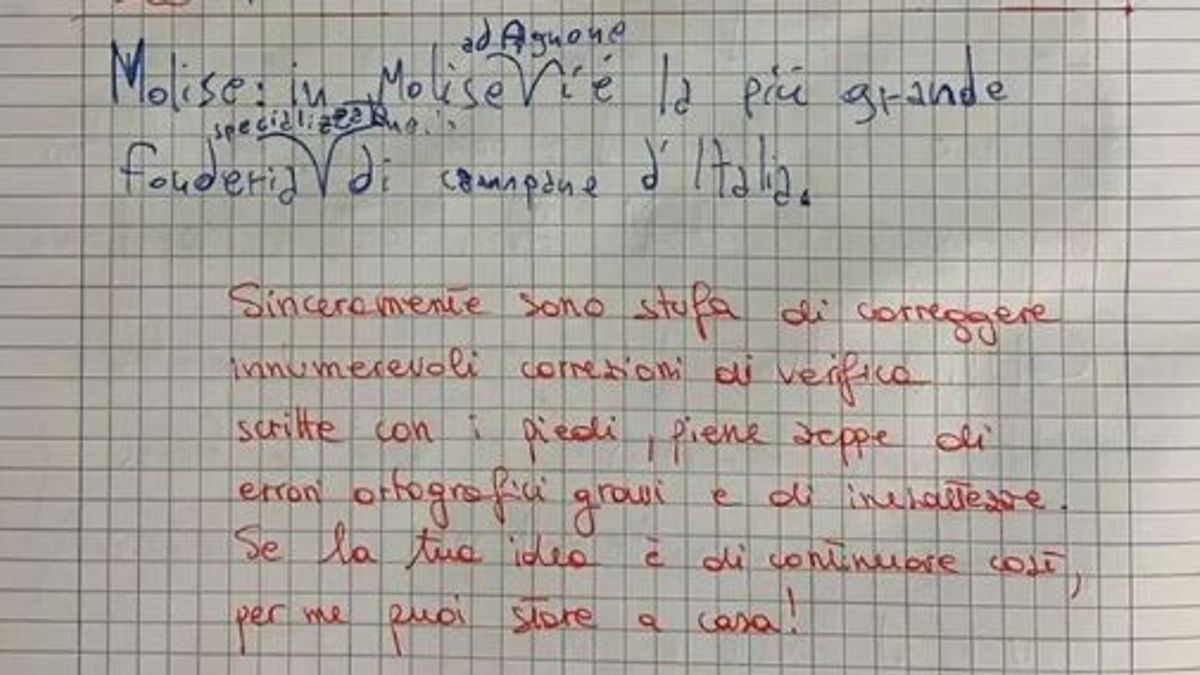 ad Agnone
Molise: in Molise V i è la più grande
specializza
fonderia V di campane d'Italia.
Sinceramente sono stufa di correggere
innumerevoli correzioni di verifica
scritte con i piedi, piene zeppe di
errori ortografici gravi e di inesattezze.
Se la tua idea è di continuare così,
per me puoi stare a casa!